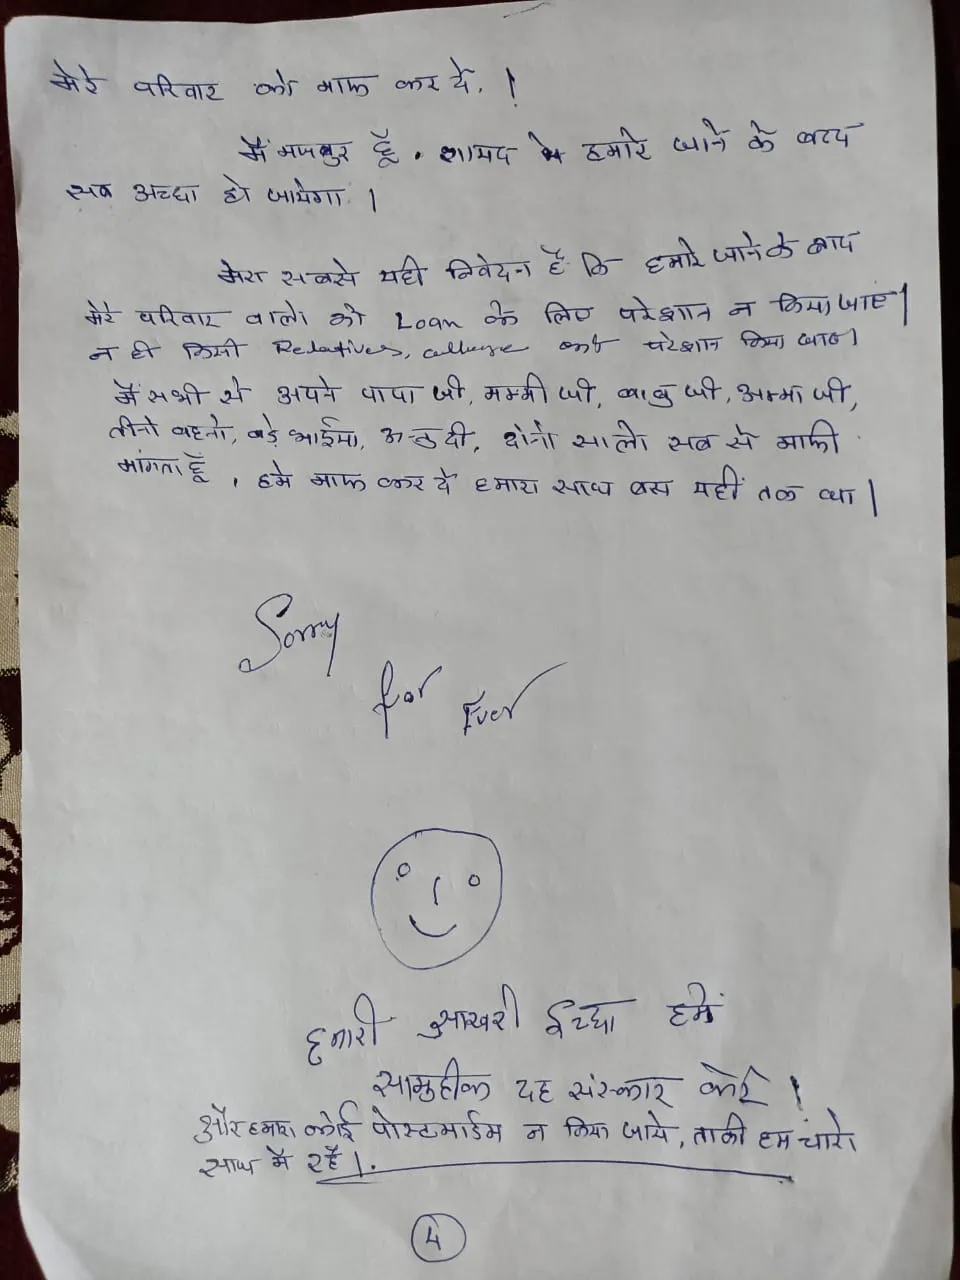 मेरे परिवार को माफ कर दे, !
मैं मजबुर हूँ, शायद हमारे जाने के बाद
सब अच्छा हो जायेगा ।
मेरा सबसे यही निवेदन है कि हमारे जाने के बाद
मेरे परिवार वालो को Loan के लिए परेशान न किया जाए।
न ही किसी Relatives, परेशान किया जाए।
मैं सभी से अपने पापा जी, मम्मी जी, बाबु जी, अम्मा जी,
तीनो बहनो, बड़े भाईया, दी, दोनो सालो सब से माफी
मांगता हूँ, हमे माफ कर दे हमारा साथ बस यहीं तक था।
Sorry
for Ever
हमारी आखरी ईच्छा हमें
सामुहीक दह संस्कार करें !
और हमारा कोई पोस्टमार्डम न किया जाये, ताकी हम चारो
साथ में रहें।
4